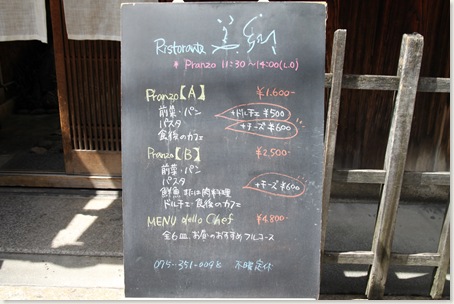 Ristorante 美郷
* Pranzo 11:30〜14:00(L.O)
Pranzo【A】 ¥1.600-
前菜・パン +ドルチェ ¥500
パスタ +チーズ ¥600
食後のカフェ
Pranzo【B】 ¥2.500-
前菜・パン
パスタ +チーズ ¥600
鮮魚 または 肉料理
ドルチェ・食後のカフェ
MENU dello Chef ¥4.800-
全6皿 お昼のおすすめフルコース
075-351-0098 不曜定休